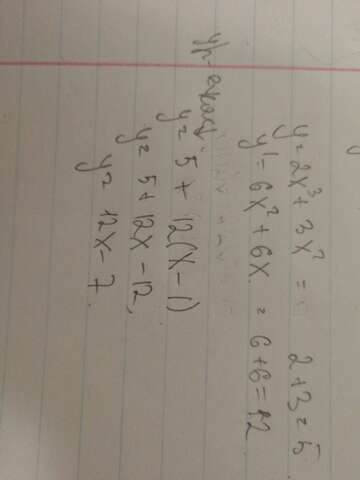 y = 2x³ + 3x² = 2+3=5
y' = 6x² + 6x = 6+6=12
ур-е кас:
y = 5 + 12(x-1)
y = 5 + 12x - 12
y = 12x - 7
y